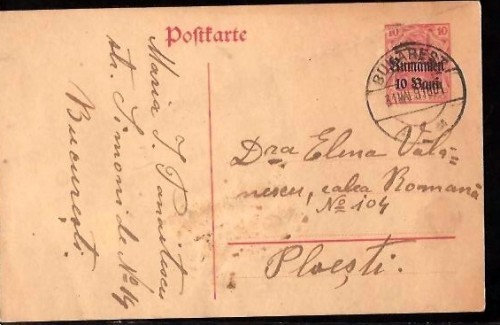 Postkarte
10 10
Rumänien
10 Bani
BUKAREST
Maria I.
str. Simoni de No 14
București.
Dra Elena Vălă=
nescu, calea Romană
No 104
Ploești.